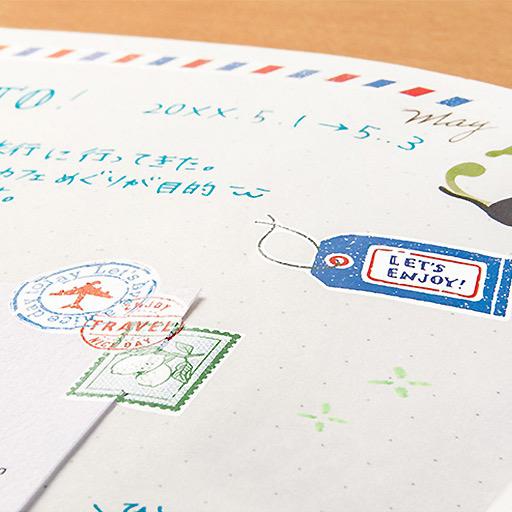 TO!
20XX.5.1→5.3
May
行に行ってきた。
カフェめぐりが目的
た。
LET'S
ENJOY!
Let's have a nice day today
ENJOY
TRAVEL
NICE DAY